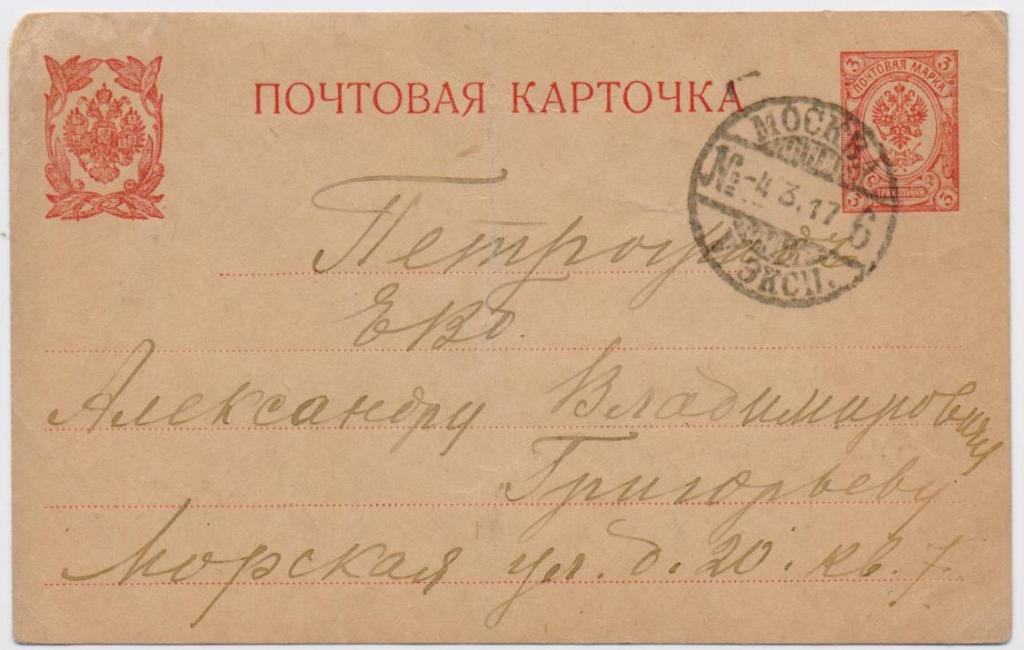 ПОЧТОВАЯ КАРТОЧКА
3 3
ПОЧТОВАЯ МАРКА
3 3
МОСКВА
№ -4 3.17 6
ЭКСП.
Петроградъ
Евб.
Александру Владимировичу
Григорьеву
Морская ул. д. 20. кв. 7